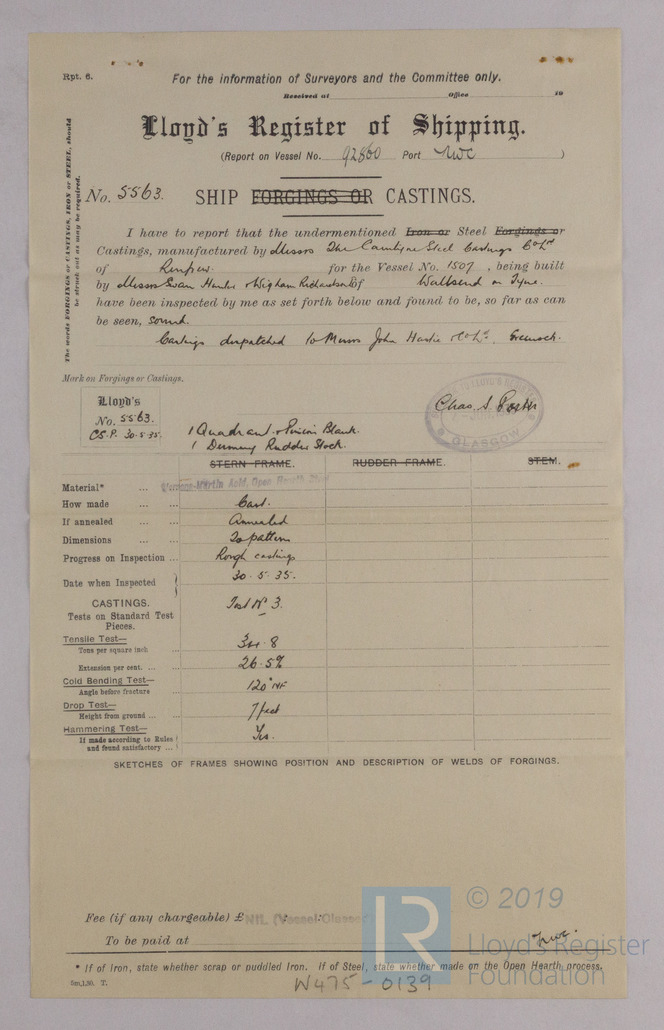 Rpt. 6.
For the information of Surveyors and the Committee only.
Received at Office 19
Lloyd's Register of Shipping.
(Report on Vessel No. 92860 Port NWC )
The words FORGINGS or CASTINGS, IRON or STEEL, should
be struck out as may be required.
No. 5563. SHIP FORGINGS OR CASTINGS.
I have to report that the undermentioned Iron or Steel Forgings or
Castings, manufactured by Messrs The Steel Castings Co Ld
of Renfrew for the Vessel No. 1507, being built
by Messrs Swan Hunter & Wigham Richardson Ld of Wallsend on Tyne
have been inspected by me as set forth below and found to be, so far as can
be seen, sound.
Castings dispatched to Messrs John Hastie & Co Ld, Greenock.
Mark on Forgings or Castings.
Lloyd's
No. 5563.
C.S.P. 30-5-35.
Chas. S.
GLASGOW
1 Quadrant & Pinion Blank
1 Dummy Rudder Stock.
STERN FRAME. RUDDER FRAME. STEM.
Material* ... Siemens-Martin Acid, Open Hearth Steel
How made ... Cast.
If annealed ... Annealed
Dimensions ... To pattern
Progress on Inspection ... Rough castings
Date when Inspected 30-5-35.
CASTINGS. Test No 3.
Tests on Standard Test
Pieces.
Tensile Test—
Tons per square inch 34.8
Extension per cent. ... 26.5%
Cold Bending Test—
Angle before fracture 120° NF
Drop Test—
Height from ground ... 7 feet
Hammering Test—
If made according to Rules
and found satisfactory ... Yes.
SKETCHES OF FRAMES SHOWING POSITION AND DESCRIPTION OF WELDS OF FORGINGS.
Fee (if any chargeable) £ NIL (Vessel Classed)
To be paid at NWC.
* If of Iron, state whether scrap or puddled Iron. If of Steel, state whether made on the Open Hearth process.
5m,1,30. T.
W475-0139
© 2019
LR
Lloyd's Register
Foundation